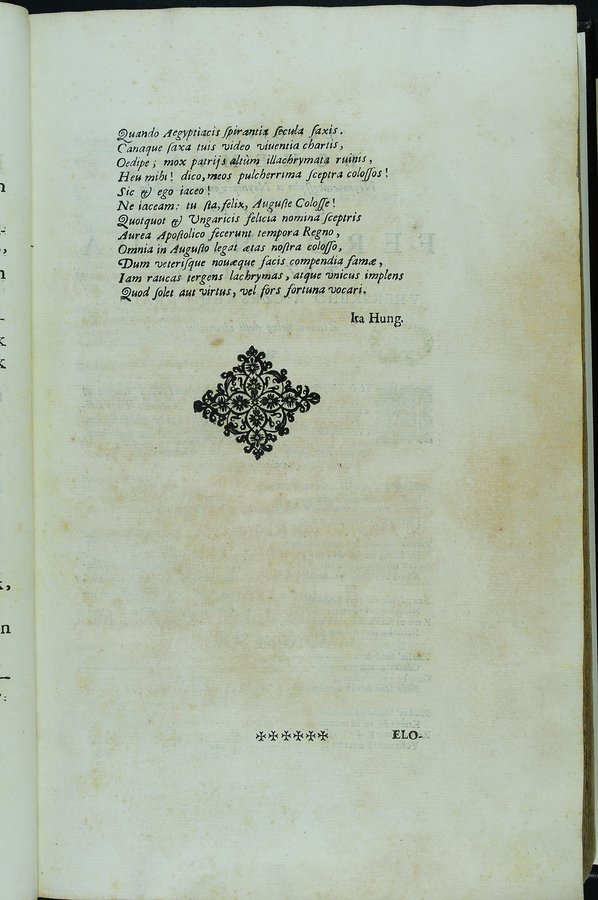 Quando Aegyptiacis ſpirantia ſecula ſaxis.
Canaque ſaxa tuis video viventia chartis,
Oedipe; mox patrijs altùm illachrymata ruinis,
Heu mihi! dico, meos pulcherrima ſceptra coloſſos!
Sic & ego iaceo!
Ne iaceam: tu ſta, felix, Auguſte Coloſſe!
Quotquot & Ungaricis felicia nomina ſceptris
Aurea Apoſtolico fecerunt tempora Regno,
Omnia in Auguſto legat ætas noſtra coloſſo,
Dum veteriſque nouæque facis compendia famæ,
Iam raucas tergens lachrymas, atque vnicus implens
Quod ſolet aut virtus, vel fors fortuna vocari.
Ita Hung.
✠✠✠✠✠✠ ELO-